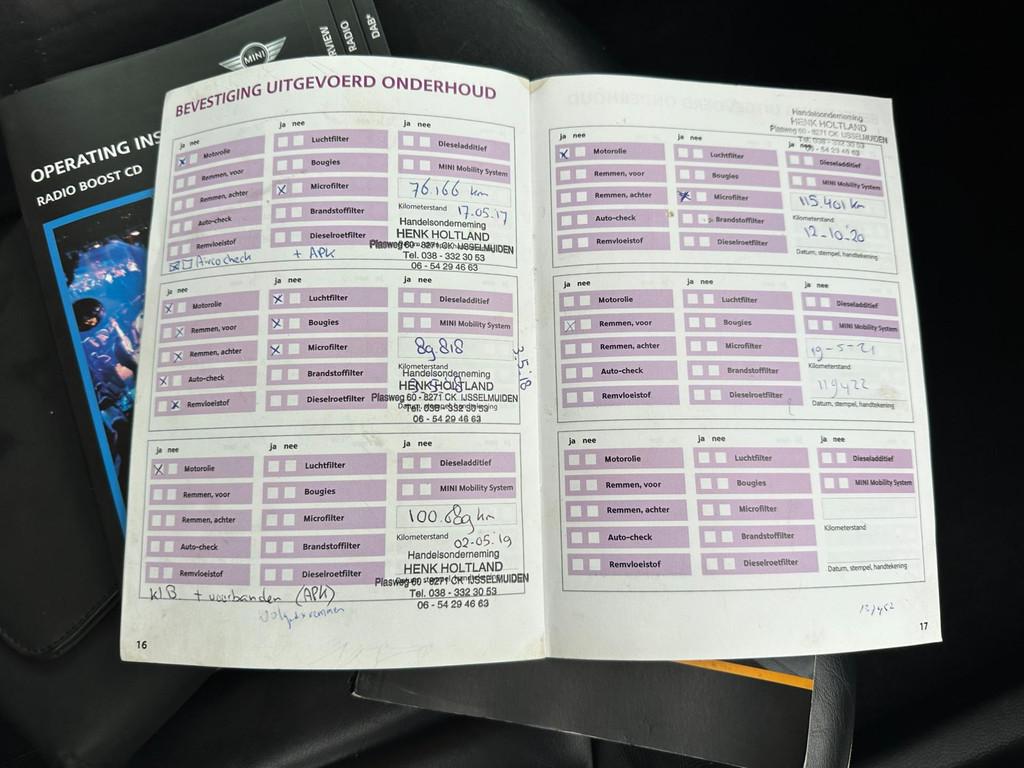 MINI
RADIO
DAB*
OPERATING INS
RADIO BOOST CD
BEVESTIGING UITGEVOERD ONDERHOUD
ja nee
Motorolie
Remmen, voor
Remmen, achter
Auto-check
Remvloeistof
Airco check
ja nee
Luchtfilter
Bougies
Microfilter
Brandstoffilter
Dieselroetfilter
+ APK
ja nee
Dieseladditief
MINI Mobility System
76.166 km
Kilometerstand
17.05.17
Handelsonderneming
HENK HOLTLAND
Plasweg 60 - 8271 CK IJSSELMUIDEN
Tel. 038 - 332 30 53
06 - 54 29 46 63
ja nee
Motorolie
Remmen, voor
Remmen, achter
Auto-check
Remvloeistof
ja nee
Luchtfilter
Bougies
Microfilter
Brandstoffilter
Dieselroetfilter
ja nee
Dieseladditief
MINI Mobility System
89.818
Kilometerstand
3.5.18
Handelsonderneming
HENK HOLTLAND
Plasweg 60 - 8271 CK IJSSELMUIDEN
Tel. 038 - 332 30 53
06 - 54 29 46 63
ja nee
Motorolie
Remmen, voor
Remmen, achter
Auto-check
Remvloeistof
ja nee
Luchtfilter
Bougies
Microfilter
Brandstoffilter
Dieselroetfilter
ja nee
Dieseladditief
MINI Mobility System
100.689 km
Kilometerstand
02-05-'19
Handelsonderneming
HENK HOLTLAND
Plasweg 60 - 8271 CK IJSSELMUIDEN
Tel. 038 - 332 30 53
06 - 54 29 46 63
KLB + voorbanden (APK)
16
Handelsonderneming
HENK HOLTLAND
Plasweg 60 - 8271 CK IJSSELMUIDEN
Tel. 038 - 332 30 53
06 - 54 29 46 63
ja nee
Motorolie
Remmen, voor
Remmen, achter
Auto-check
Remvloeistof
ja nee
Luchtfilter
Bougies
Microfilter
Brandstoffilter
Dieselroetfilter
ja nee
Dieseladditief
MINI Mobility System
115.401 km
Kilometerstand
12-10-'20
Datum, stempel, handtekening
ja nee
Motorolie
Remmen, voor
Remmen, achter
Auto-check
Remvloeistof
ja nee
Luchtfilter
Bougies
Microfilter
Brandstoffilter
Dieselroetfilter
ja nee
Dieseladditief
MINI Mobility System
19-5-21
Kilometerstand
119422
Datum, stempel, handtekening
ja nee
Motorolie
Remmen, voor
Remmen, achter
Auto-check
Remvloeistof
ja nee
Luchtfilter
Bougies
Microfilter
Brandstoffilter
Dieselroetfilter
ja nee
Dieseladditief
MINI Mobility System
Kilometerstand
Datum, stempel, handtekening
17